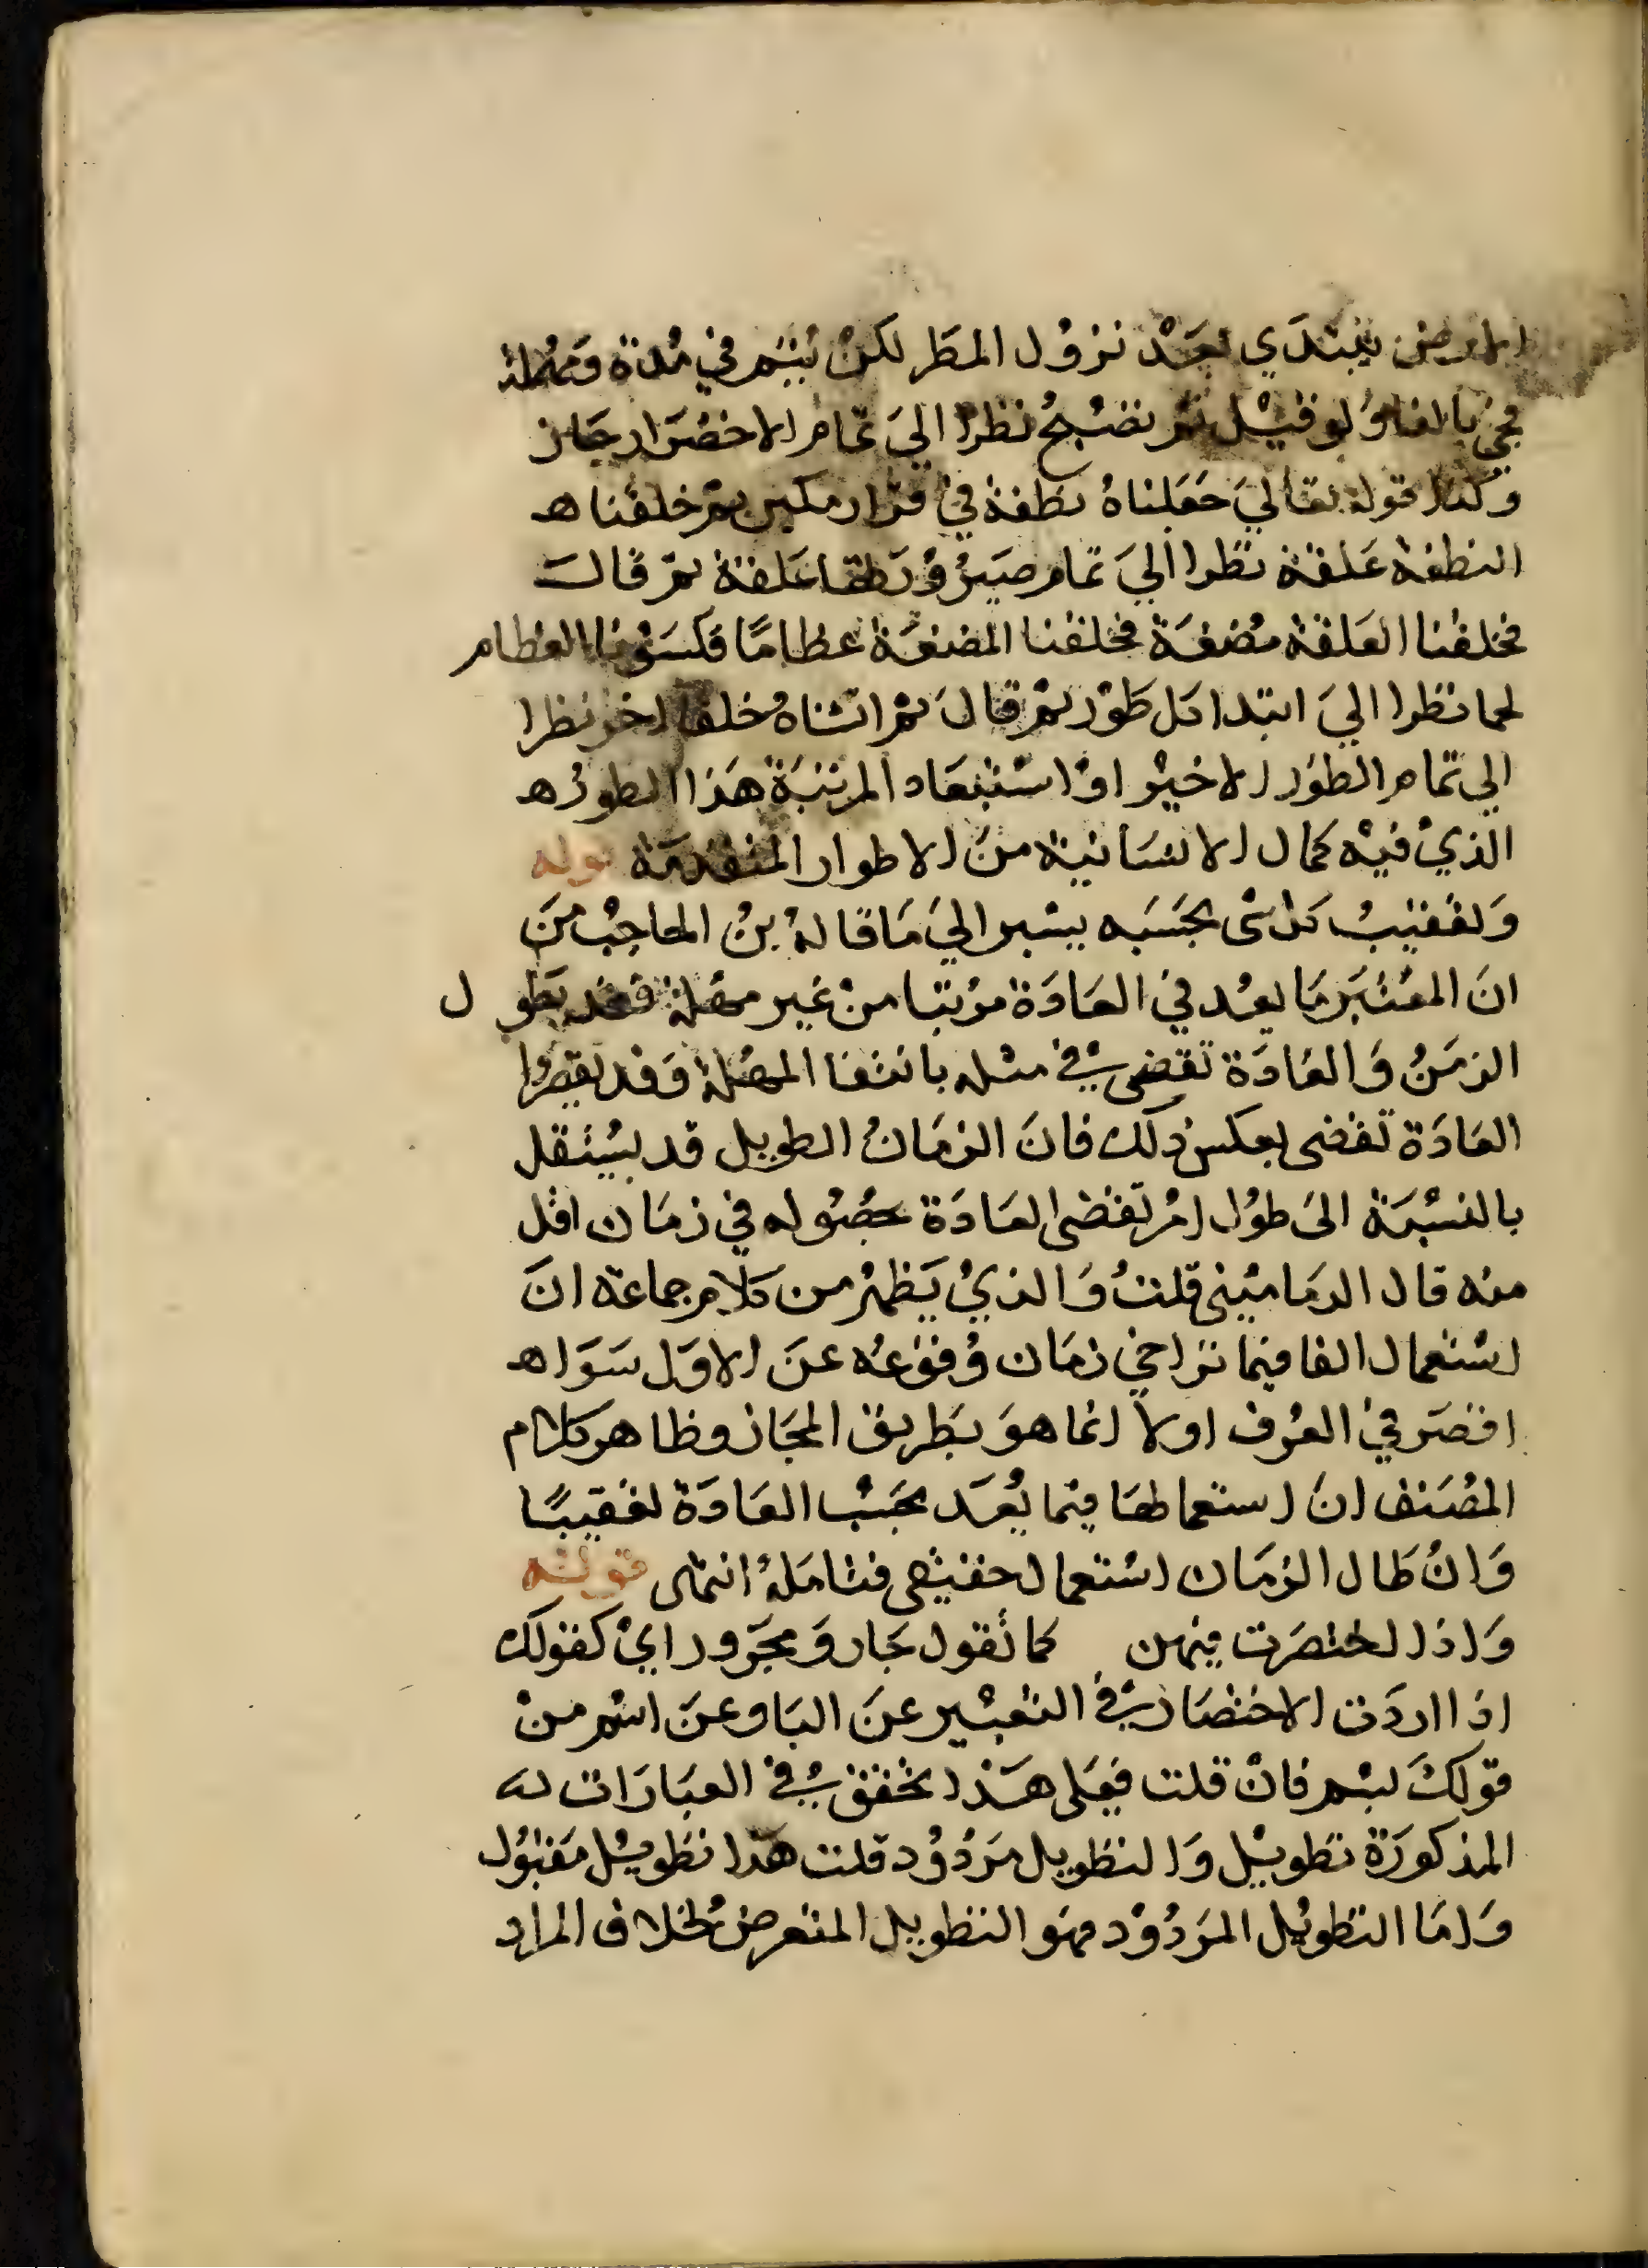 الارض يبتدي بعد نزول المطر لكن يتم في مدة ومهلة
فجئ بالفا ولو قيل ثم تصبح نظرا الى تمام الاخضرار جاز
وكذا قوله تعالي جعلناه نطفة في قرار مكين ثم خلقنا ه
النطفة علقة نظرا الي تمام صيرورتها علقة ثم قال
فخلقنا العلقة مضغة فخلقنا المضغة عظاما فكسونا العظام
لحما نظرا الي ابتدا كل طور ثم قال ثم انشاناه خلقا اخر نظرا
الي تمام الطور الاخير او استبعاد المرتبة هذا الطور ه
الذي فيه كمال الانسانية من الاطوار المتقدمة قوله
وتعقيب كل شى بحسبه يشير الي ما قاله بن الحاجب من
ان المعتبر ما يعد في العادة مرتبا من غير مهلة فقد يطول
الزمن والعادة تقضى في مثله بانتفا المهلة وقد يقصر وا
العادة تقضى بعكس ذلك فان الزمان الطويل قد يستقل
بالنسبة الى طول امر تقضى العادة بحصوله في زمان اقل
منه قال الدمامينى قلت والذي يظهر من كلام جماعة ان
استعمال الفا فيما تراخي زمان وقوعه عن الاول سوا ه
اقصر في العرف اولا انما هو بطريق المجاز وظاهر كلام
المصنف ان استعمالها فيما يعد بحسب العادة تعقيبا
وان طال الزمان استعمال حقيقى فتامله انتهى قوله
واذا اختصرت فيهن كما تقول جار ومجرور اي كقولك
اذا اردت الاختصار في التعبير عن البا وعن اسم من
قولك بسم فان قلت فعلى هذا تحقق في العبارات له
المذكورة تطويل والتطويل مردود قلت هذا تطويل مقبول
واما التطويل المردود فهو التطويل المتعرض لخلاف المراد